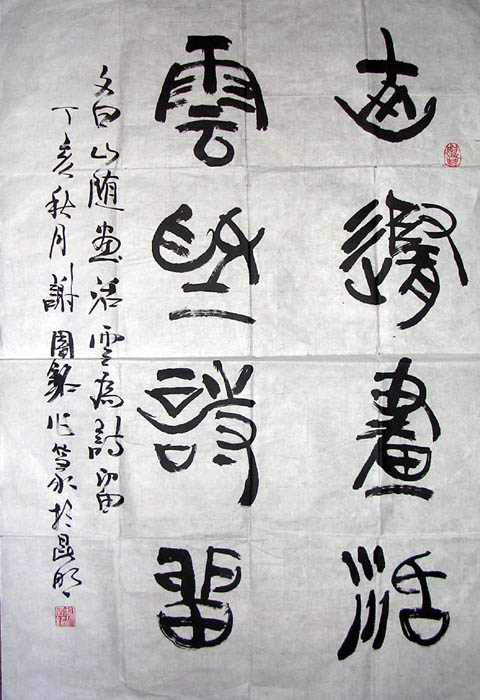 山隨畫活
雲為詩留
文曰山随畫活雲為詩留
丁亥秋月謝國作篆於昆明